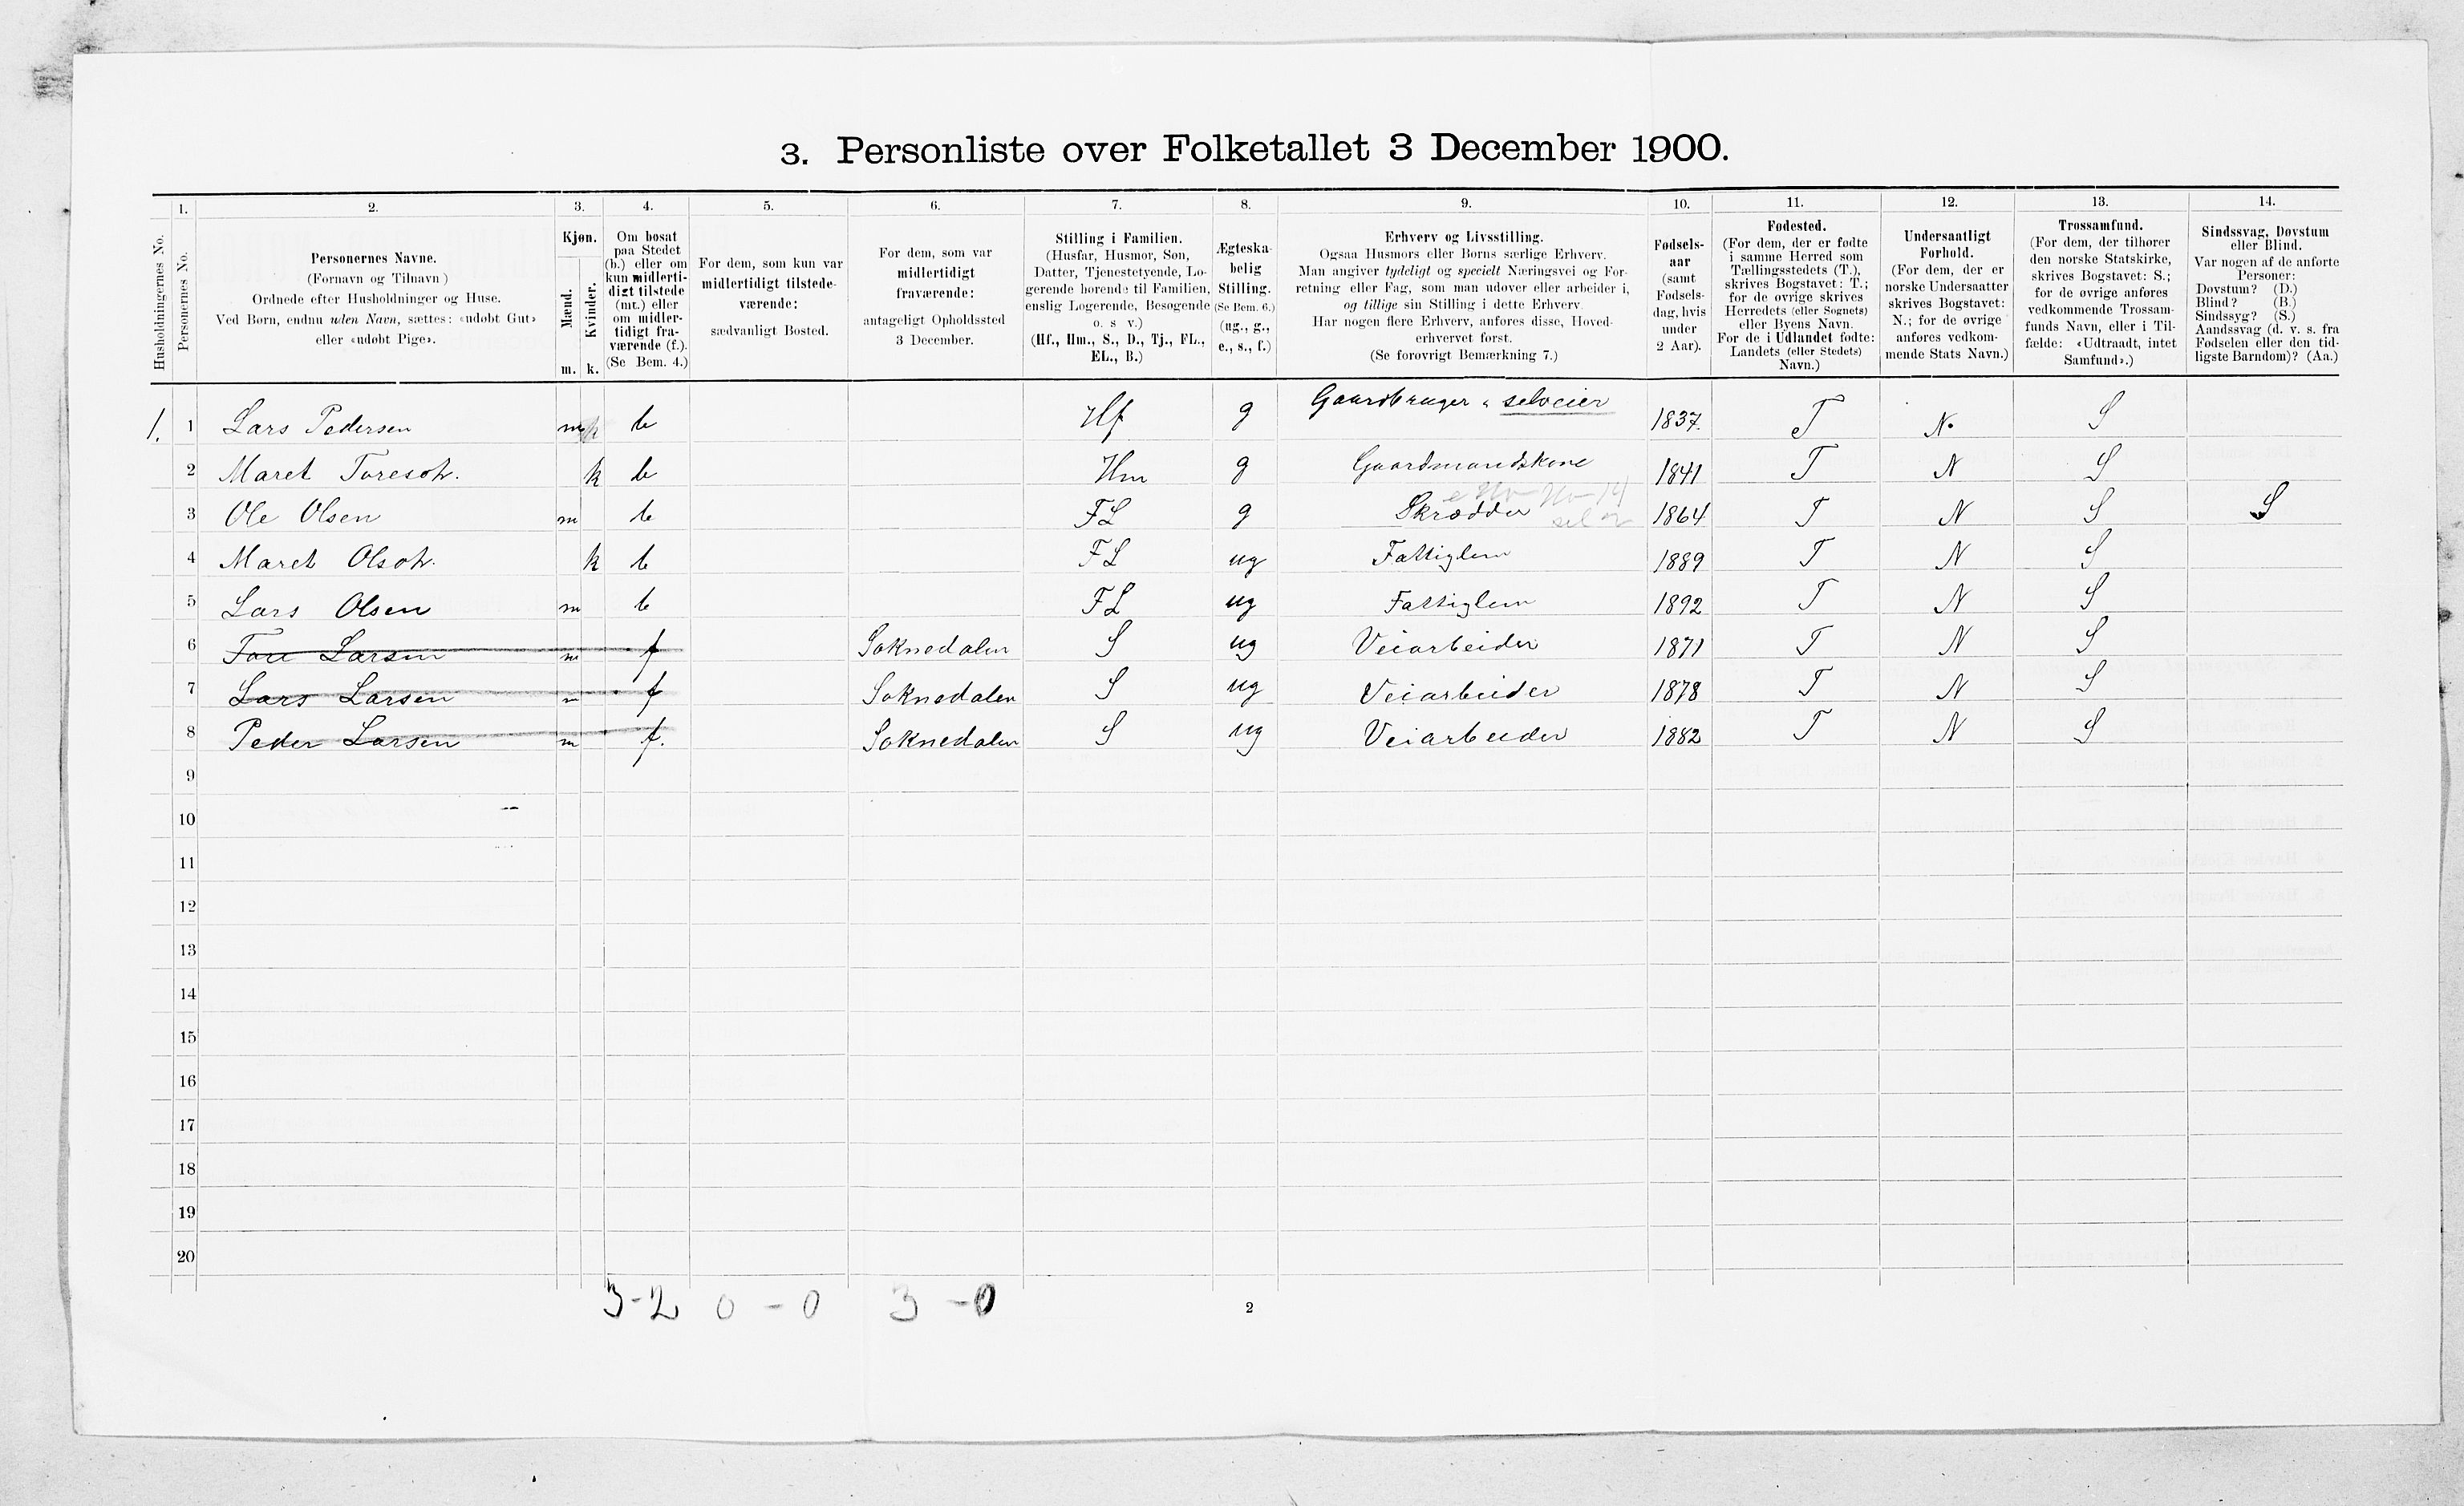 3. Personliste over Folketallet 3 December 1900.
1. 2. 3. 4. 5. 6. 7. 8. 9. 10. 11. 12. 13. 14.
Husholdningernes No.
Personernes No.
Personernes Navne.
(Fornavn og Tilnavn)
Ordnede efter Husholdninger og Huse.
Ved Børn, endnu uden Navn, sættes: «udøbt Gut»
eller «udøbt Pige».
Kjøn.
Mænd.
Kvinder.
m. k.
Om bosat
paa Stedet
(b.) eller om
kun midlerti-
digt tilstede
(mt.) eller
om midler-
tidigt fra-
værende (f.).
(Se Bem. 4.)
For dem, som kun var
midlertidigt tilstede-
værende:
sædvanligt Bosted.
For dem, som var
midlertidigt
fraværende:
antageligt Opholdssted
3 December.
Stilling i Familien.
(Husfar, Husmor, Søn,
Datter, Tjenestetyende, Lo-
gerende hørende til Familien,
enslig Logerende, Besøgende
o. s v.)
(Hf., Hm., S., D., Tj., FL.,
EL., B.)
Ægteska-
belig
Stilling.
(Se Bem. 6.)
(ug., g.,
e., s., f.)
Erhverv og Livsstilling.
Ogsaa Husmors eller Børns særlige Erhverv.
Man angiver tydeligt og specielt Næringsvei og For-
retning eller Fag, som man udøver eller arbeider i,
og tillige sin Stilling i dette Erhverv.
Har nogen flere Erhverv, anføres disse, Hoved-
erhvervet først.
(Se forøvrigt Bemærkning 7.)
Fødsels-
aar
(samt
Fødsels-
dag, hvis
under
2 Aar).
Fødested.
(For dem, der er fødte
i samme Herred som
Tællingsstedets (T.),
skrives Bogstavet: T.;
for de øvrige skrives
Herredets (eller Sognets)
eller Byens Navn.
For de i Udlandet fødte:
Landets (eller Stedets)
Navn.)
Undersaatligt
Forhold.
(For dem, der er
norske Undersaatter
skrives Bogstavet:
N.; for de øvrige
anføres vedkom-
mende Stats Navn.)
Trossamfund.
(For dem, der tilhører
den norske Statskirke,
skrives Bogstavet: S.;
for de øvrige anføres
vedkommende Trossam-
funds Navn, eller i Til-
fælde: «Udtraadt, intet
Samfund».)
Sindssvag, Døvstum
eller Blind.
Var nogen af de anførte
Personer:
Døvstum? (D.)
Blind? (B.)
Sindssyg? (S.)
Aandssvag (d. v. s. fra
Fødselen eller den tid-
ligste Barndom)? (Aa.)
1. 1 Lars Pedersen m b Hf g Gaardbruger selveier 1837 T N. S
2 Maret Toresdt. k b Hm g Gaardmandskone 1841 T N S
3 Ole Olsen m b FL g Skrædder 1864 T N S S
4 Maret Olsdt. k b FL ug Fattiglem 1889 T N S
5 Lars Olsen m b FL ug Fattiglem 1892 T N S
6 Tore Larsen m f Soknedalen S ug Veiarbeider 1871 T N S
7 Lars Larsen m f Soknedalen S ug Veiarbeider 1878 T N S
8 Peder Larsen m f. Soknedalen S ug Veiarbeider 1882 T N S
9
10
11
12
13
14
15
16
17
18
19
20
3-2 0-0 3-0
2